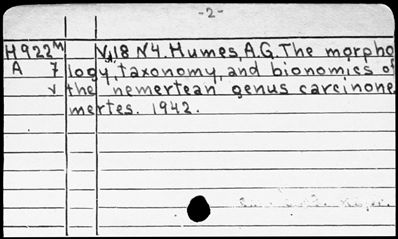 -2-
H922m V.18 N4. Humes, A.G. The morpho
A 7 logy, taxonomy, and bionomics of
v the nemertean genus carcinone
mertes. 1942.